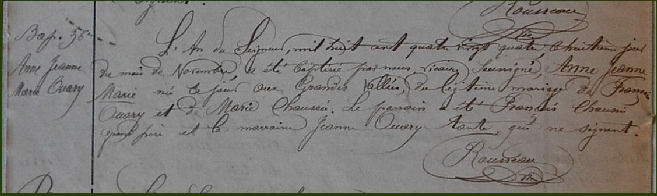 Rousseau
Bap. 56e
L'An du Seigneur, mil huit cent quatre vingt quatre huitième jour
Anne Jeanne
du mois de Novembre a été baptisée par nous, vicaire soussigné, Anne Jeanne
Marie Ouary
Marie née le jour aux Grandes Vallées du légitime mariage de François
Ouary et de Marie Chaussé. Le parrain a été François Chaussé
grand père et la marraine Jeanne Ouary tante qui ne signent.
Rousseau